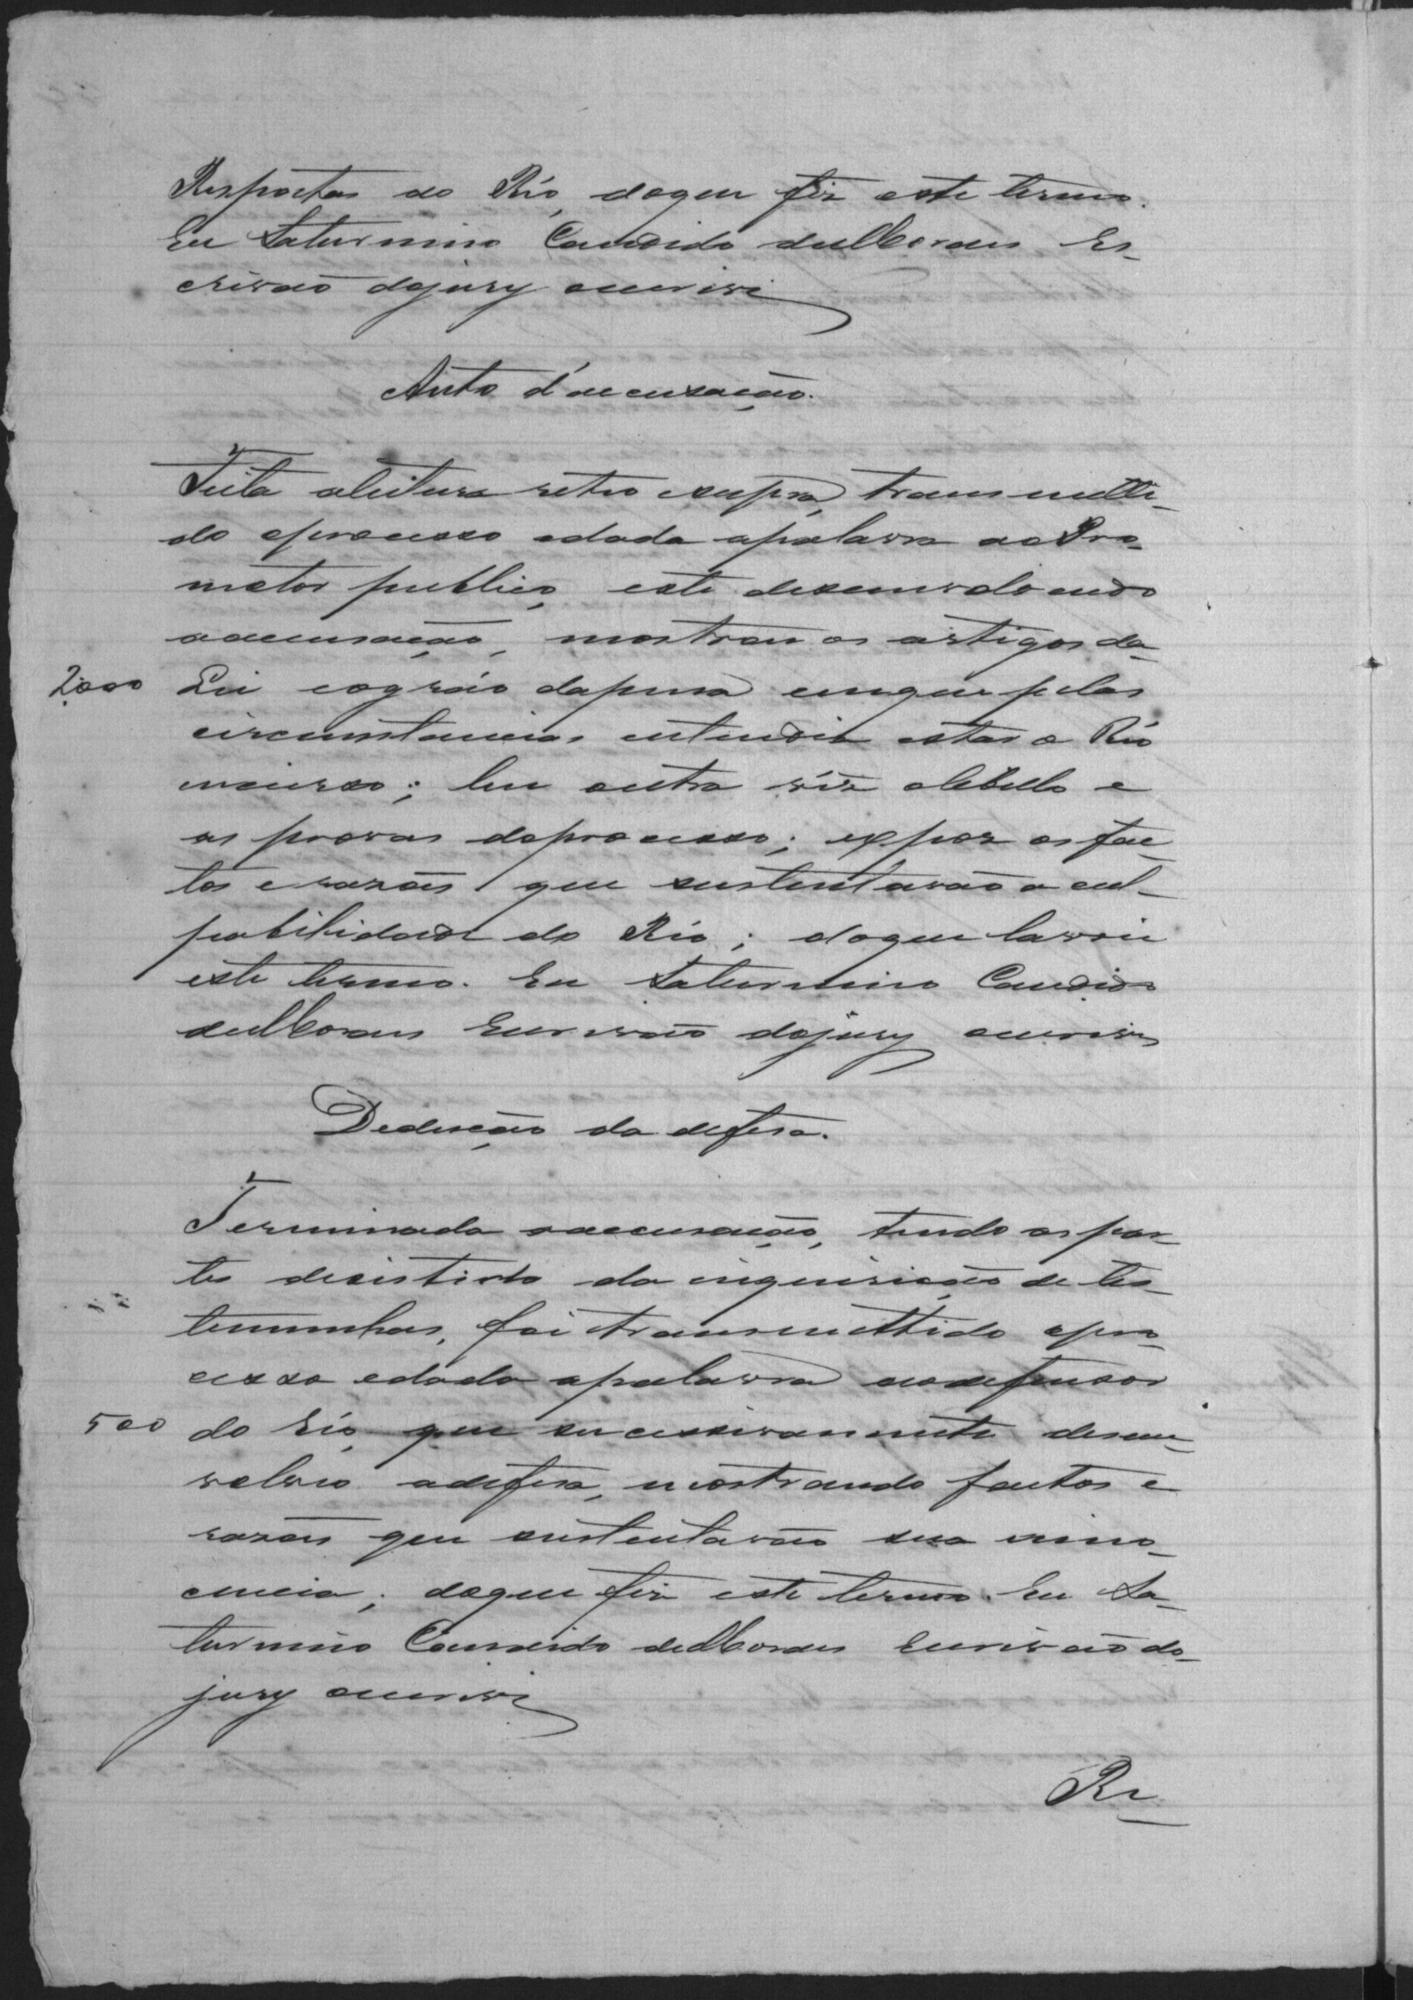 Respostas do Réo, doque fiz este termo.
Eu Saturnino Candido de Moraes Es-
crivão dojury escrivi
Auto d'accusação.
Feita aleitura retro esupra, transmitti-
do oprocesso edada apalavra ao Pro-
motor publico, este desenvolvendo
aaccusação, mostrou os artigos da
2000
Lei eográo dapena emque pelas
circumstancias entendia estar o Réo
incurso; leu outra vêz olibello e
as provas doprocesso; expoz os fac-
tos erazões que sustentavão a cul-
pabilidade do Réo; doque lavrei
este termo. Eu Saturnino Candido
de Moraes Escrivão dojury escrivi
Dedução da defesa.
Terminada aaccusação, tendo as par-
tes desistido da inquirição de tes-
temunhas, foi transmittido opro-
cesso edada apalavra aodefensor
500
do Réo, que successivamente desen-
volveo adefesa, mostrando factos e
razões que sustentavão sua inno-
cencia; doque fiz este termo. Eu Sa-
turnino Candido de Moraes Escrivão do
jury escrivi
Re-